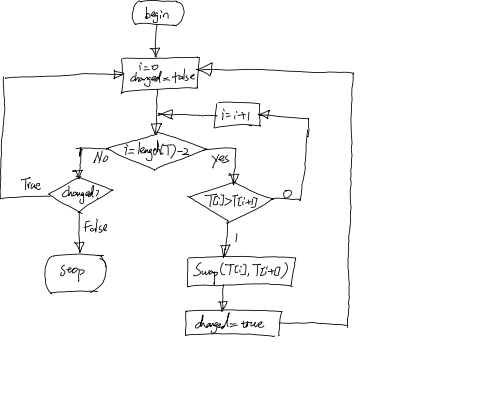 begin
i=0
changed=false
i=i+1
i=length(T)-2
No
yes
True
changed?
T[i]>T[i+1]
0
False
1
Stop
Swap(T[i],T[i+1])
changed=true